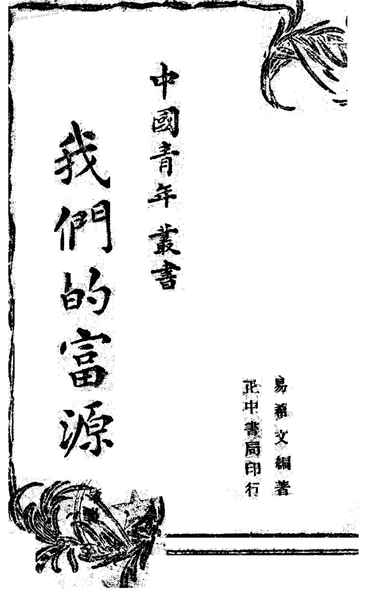 易文編著
正中書局印行
中國青年叢書
我們的富源